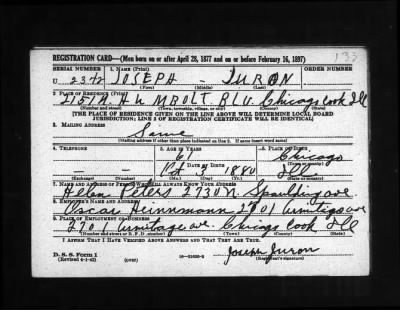 133
REGISTRATION CARD—(Men born on or after April 28, 1877 and on or before February 16, 1897)
SERIAL NUMBER 1. NAME (Print) ORDER NUMBER
U 2342 JOSEPH - JURON
(First) (Middle) (Last)
2. PLACE OF RESIDENCE (Print)
2151 N. HUMBOLT. BLV. Chicago Cook Ill
(Number and street) (Town, township, village, or city) (County) (State)
[THE PLACE OF RESIDENCE GIVEN ON THE LINE ABOVE WILL DETERMINE LOCAL BOARD
JURISDICTION; LINE 2 OF REGISTRATION CERTIFICATE WILL BE IDENTICAL]
3. MAILING ADDRESS
Same
[Mailing address if other than place indicated on line 2. If same insert word same]
4. TELEPHONE 5. AGE IN YEARS 6. PLACE OF BIRTH
61 Chicago
DATE OF BIRTH (Town or county)
1880 Ill
(Exchange) (Number) (Mo.) (Day) (Yr.) (State or country)
7. NAME AND ADDRESS OF PERSON WHO WILL ALWAYS KNOW YOUR ADDRESS
Helen 2730 N Spaulding ave
8. EMPLOYER'S NAME AND ADDRESS
Oscar Heinnemann 2701 Armitage ave
9. PLACE OF EMPLOYMENT OR BUSINESS
2701 Armitage ave. Chicago Cook Ill
(Number and street or R. F. D. number) (Town) (County) (State)
I AFFIRM THAT I HAVE VERIFIED ABOVE ANSWERS AND THAT THEY ARE TRUE.
D. S. S. Form 1
(Revised 4-1-42) (over) 16—21630-2
Joseph Juron
(Registrant's signature)